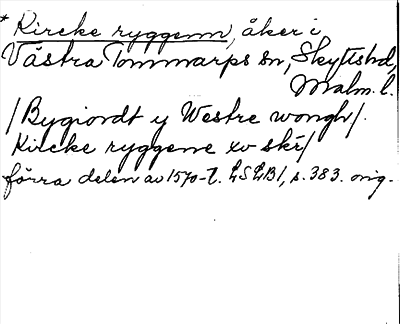 * Kircke ryggenn, åker i
Västra Tommarps sn, Skytts hd,
Malm. l.
/Bygiordt y Westre wongh/.
Kircke ryggene xv skr/
förra delen av 1570-t. LSLB1, s. 383. orig.